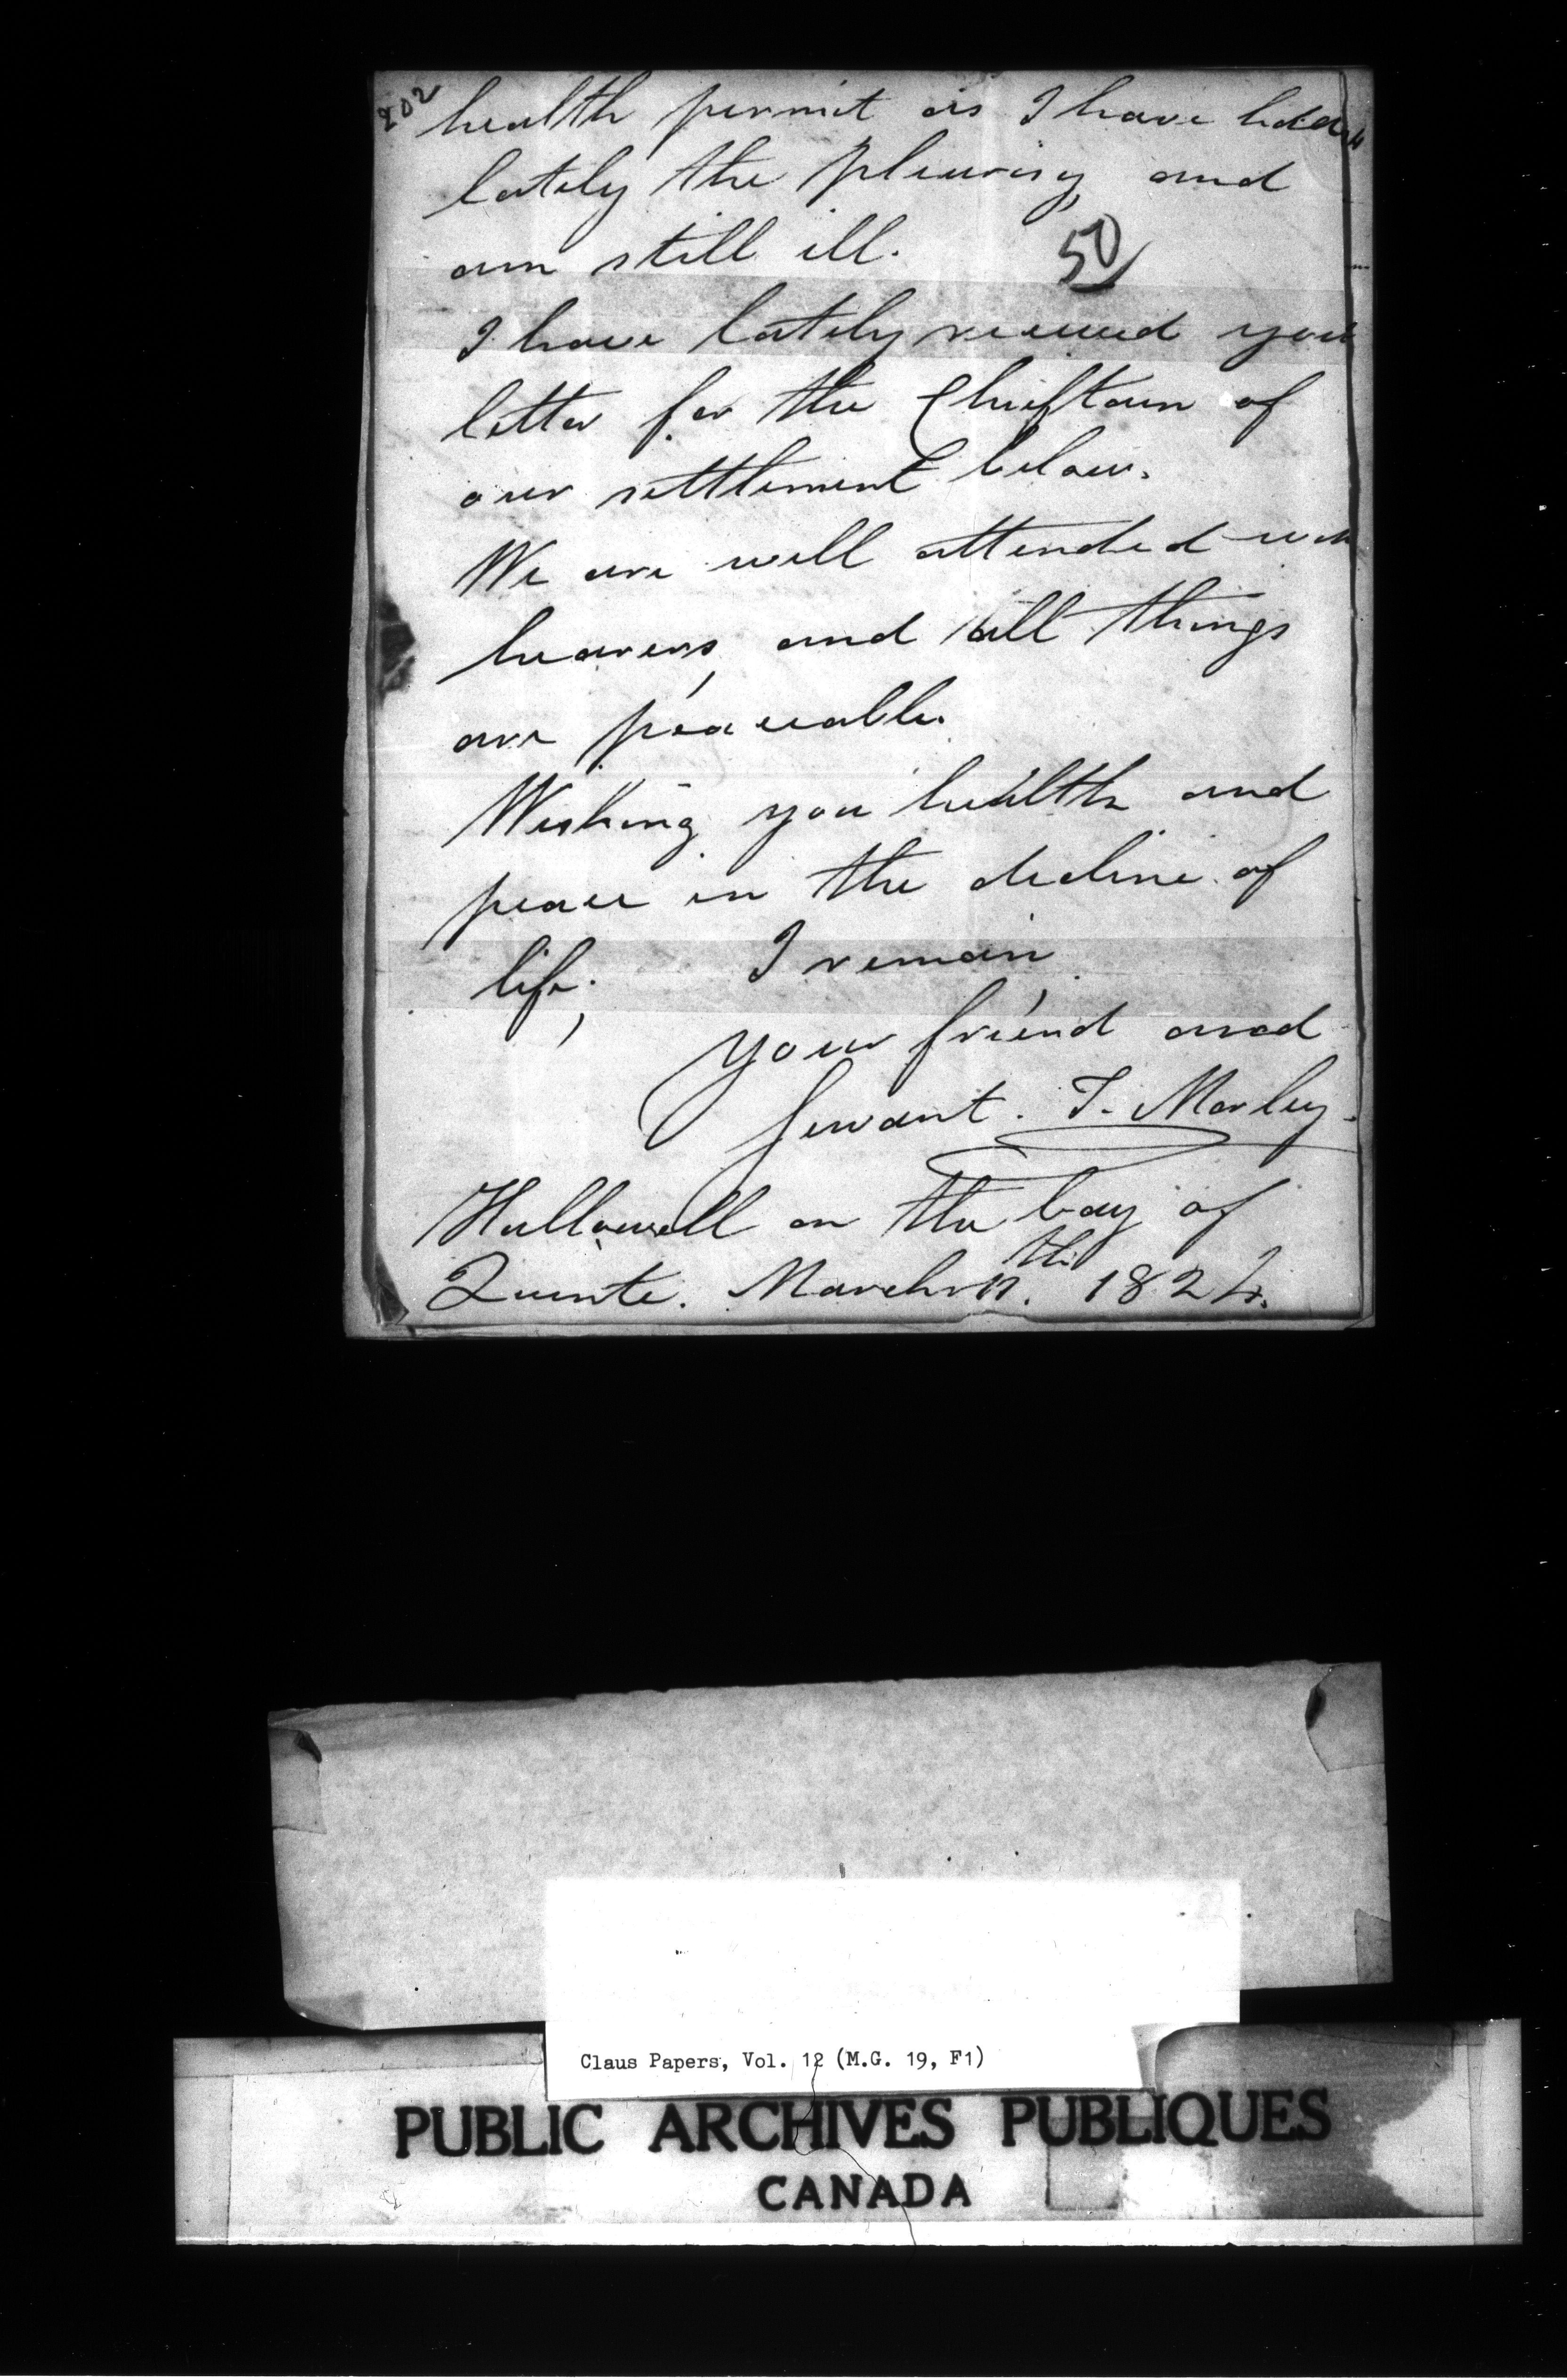 202
health permit as I have had
lately the pleurisy, and
am still ill.
50
I have lately received your
letter for the Chieftain of
our settlement below.
We are well attended with
hearers, and all things
are peaceable.
Wishing you health and
peace in the decline of
life; I remain,
your friend and
Servant. T. Morley.
Hallowell on the bay of
Quinte. March 17th. 1824.
Claus Papers, Vol. 12 (M.G. 19, F1)
PUBLIC ARCHIVES PUBLIQUES
CANADA